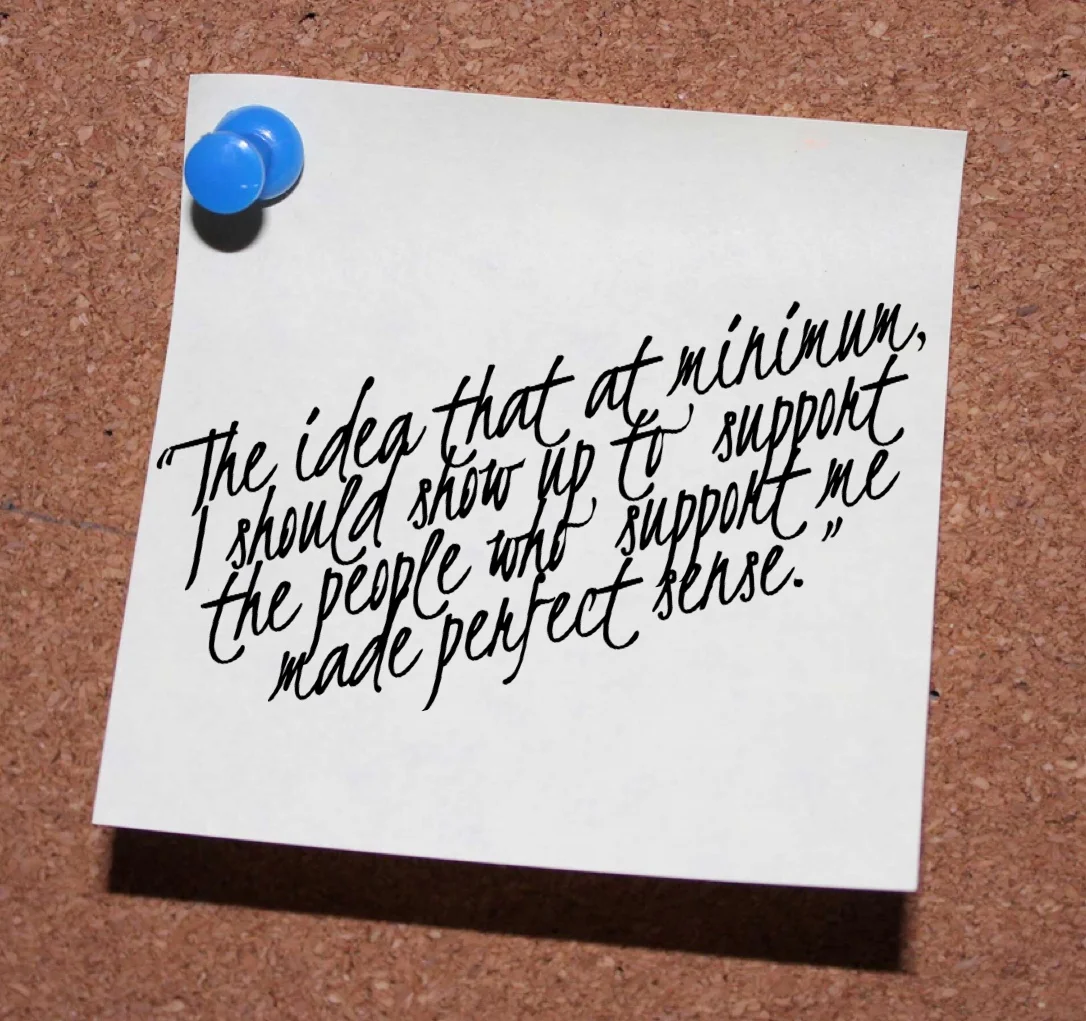 “The idea that at minimum,
I should show up to support
the people who support me
made perfect sense.”